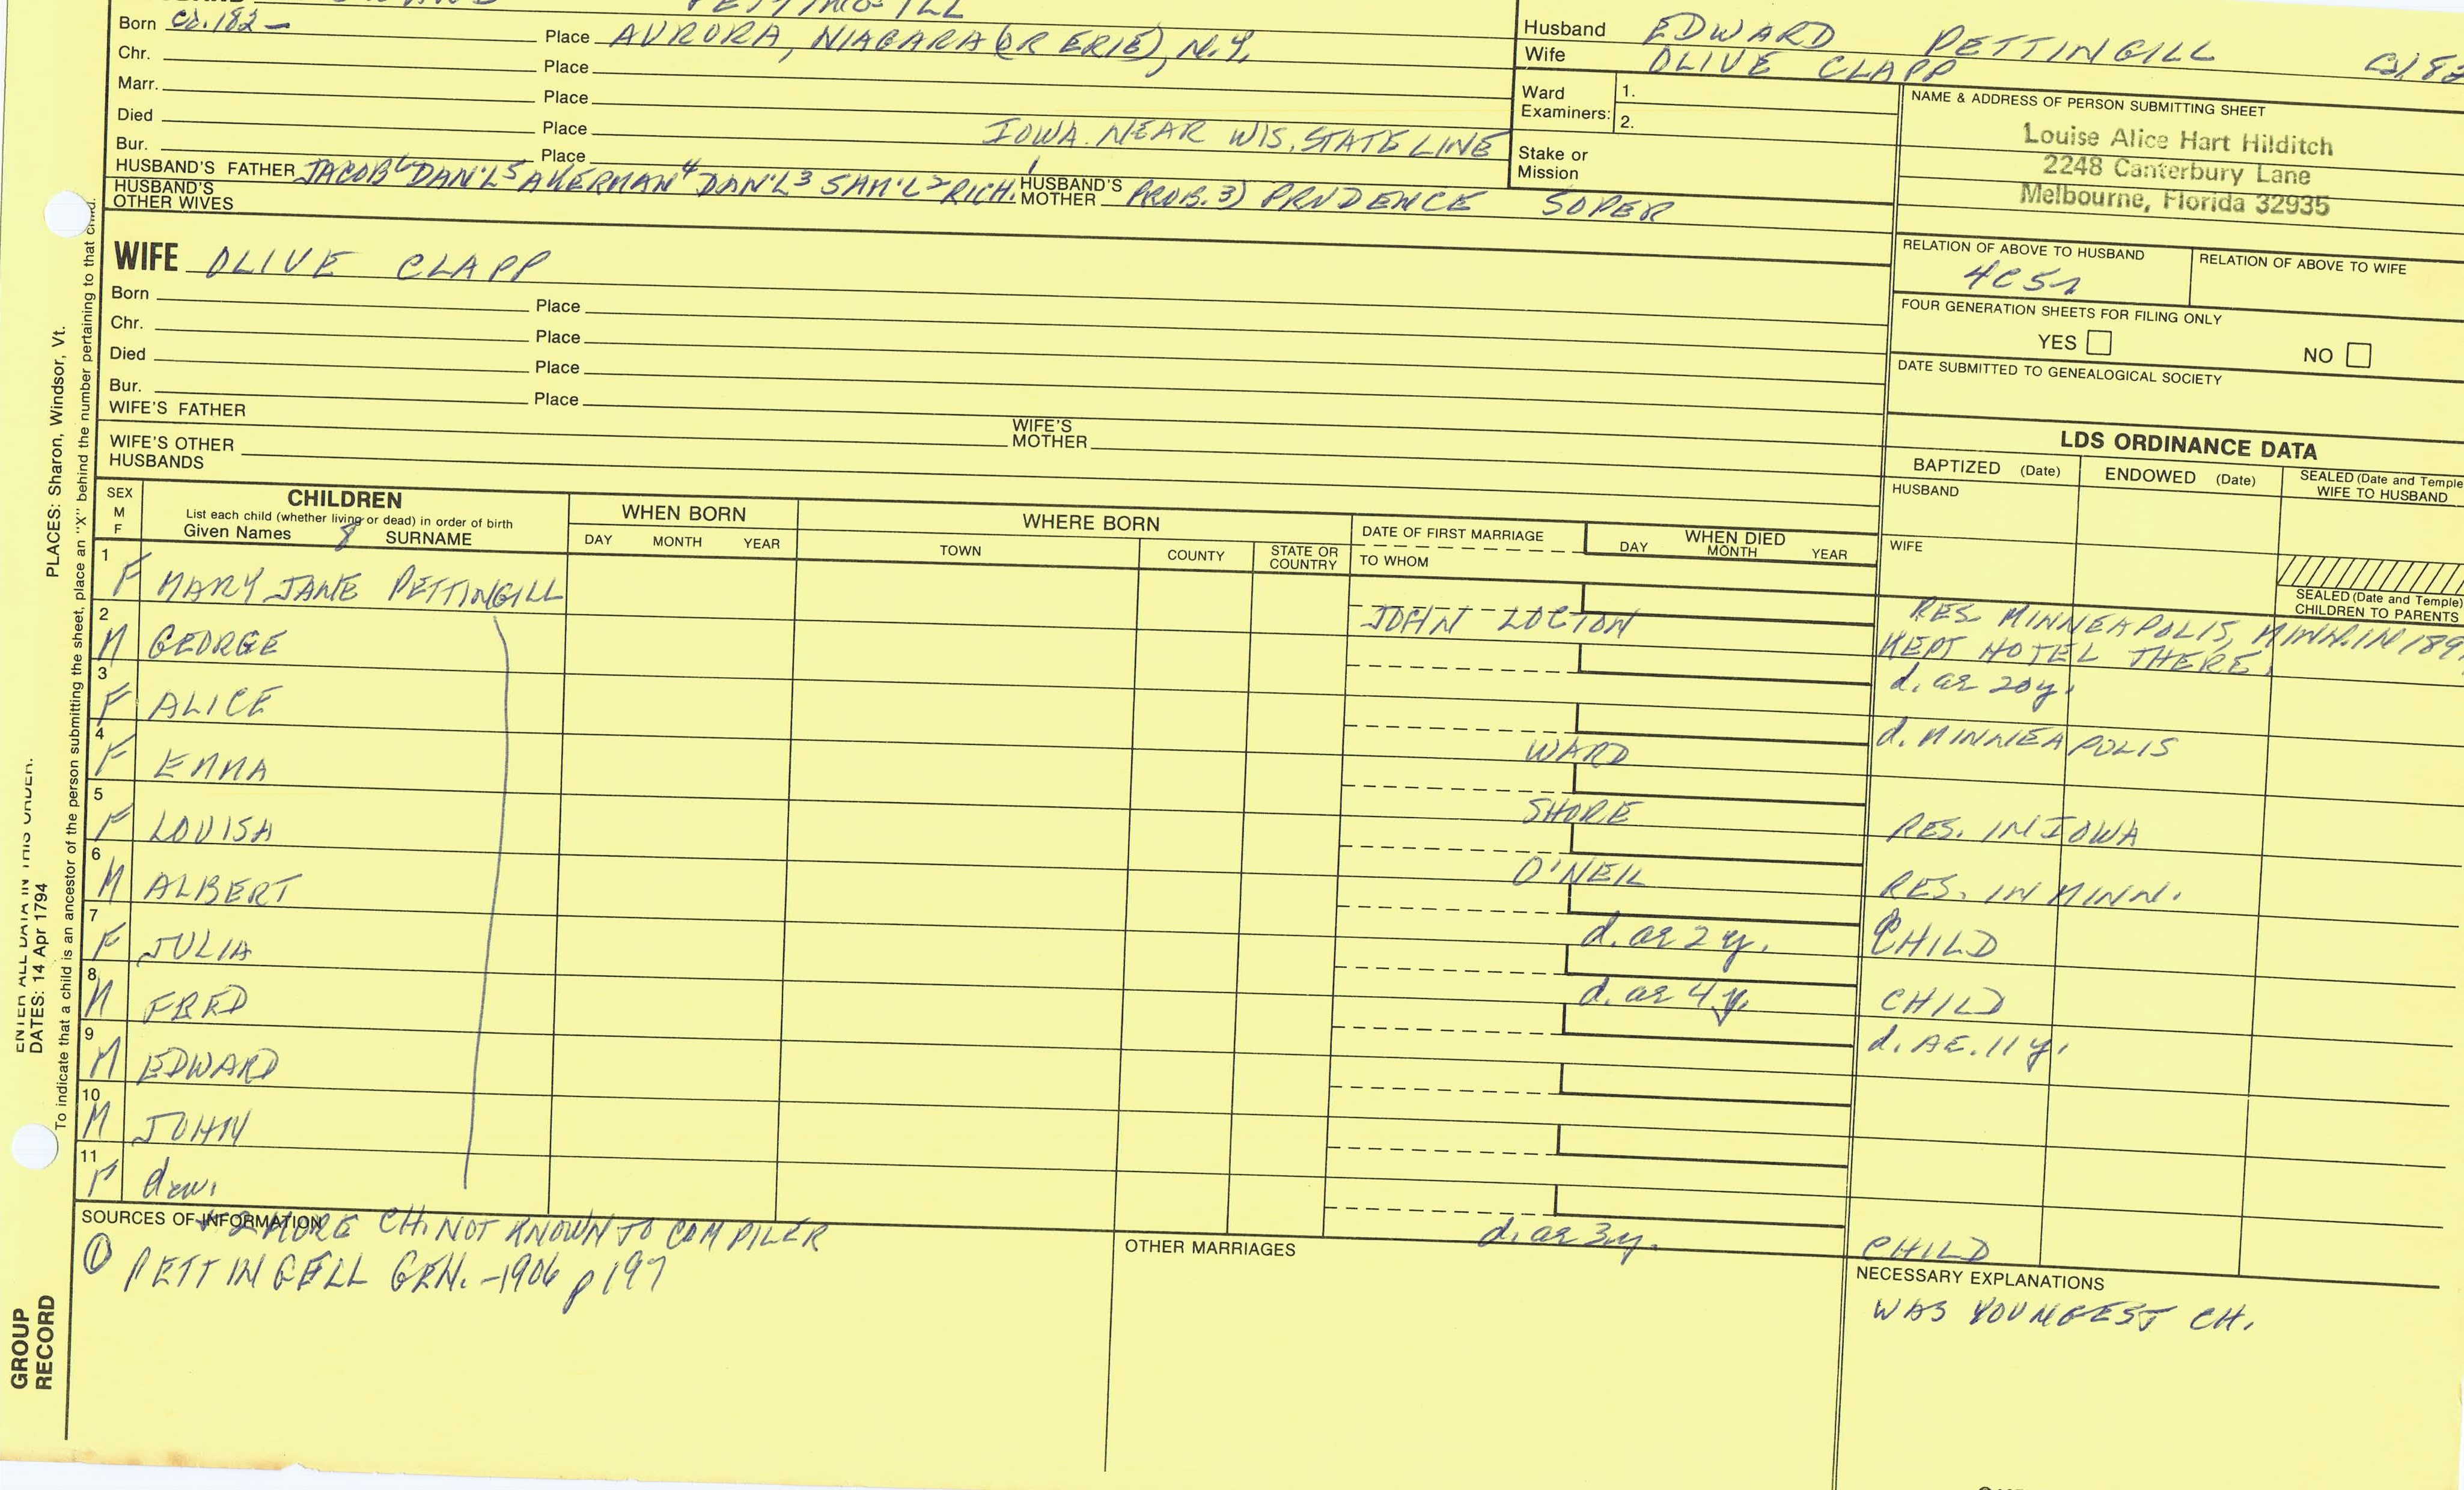 PETTINGILL
Born ca. 182- Place AURORA, NIAGARA (OR ERIE), N.Y.
Chr. Place
Marr. Place
Died Place
Bur. Place IOWA. NEAR WIS. STATE LINE
HUSBAND'S FATHER JACOB6 DAN'L5 AKERMAN4 DAN'L3 SAM'L2 RICH.1 HUSBAND'S MOTHER PROB. 3) PRUDENCE SOPER
HUSBAND'S OTHER WIVES
Husband EDWARD PETTINGILL
Wife OLIVE CLAPP
Ward Examiners: 1.
2.
Stake or Mission
NAME & ADDRESS OF PERSON SUBMITTING SHEET
Louise Alice Hart Hilditch
2248 Canterbury Lane
Melbourne, Florida 32935
RELATION OF ABOVE TO HUSBAND RELATION OF ABOVE TO WIFE
4C5r
FOUR GENERATION SHEETS FOR FILING ONLY
YES NO
DATE SUBMITTED TO GENEALOGICAL SOCIETY
WIFE OLIVE CLAPP
Born Place
Chr. Place
Died Place
Bur. Place
WIFE'S FATHER WIFE'S MOTHER
WIFE'S OTHER HUSBANDS
LDS ORDINANCE DATA
BAPTIZED (Date) ENDOWED (Date) SEALED (Date and Temple) WIFE TO HUSBAND
HUSBAND
WIFE
SEALED (Date and Temple) CHILDREN TO PARENTS
SEX M F
CHILDREN
List each child (whether living or dead) in order of birth
Given Names 8 SURNAME
WHEN BORN
DAY MONTH YEAR
WHERE BORN
TOWN COUNTY STATE OR COUNTRY
DATE OF FIRST MARRIAGE
TO WHOM
WHEN DIED
DAY MONTH YEAR
1 F MARY JANE PETTINGILL JOHN LOCTON RES. MINNEAPOLIS, MINN. IN 189
KEPT HOTEL THERE.
2 M GEORGE d. ae 20y.
3 F ALICE WARD d. MINNEAPOLIS
4 F EMMA SHORE RES. IN IOWA
5 F LOUISA O'NEIL RES. IN MINN.
6 M ALBERT d. ae 2 y. CHILD
7 F JULIA d. ae 4 y. CHILD
8 M FRED d. AE. 11 y.
9 M EDWARD
10 M JOHN
11 F dau. d. ae 3y. CHILD
SOURCES OF INFORMATION
+ 2 MORE CH. NOT KNOWN TO COMPILER
① PETTINGELL GEN. -1906 p 197
OTHER MARRIAGES
NECESSARY EXPLANATIONS
WAS YOUNGEST CH.
ENTER ALL DATA IN THIS ORDER.
DATES: 14 Apr 1794
PLACES: Sharon, Windsor, Vt.
To indicate that a child is an ancestor of the person submitting the sheet, place an "X" behind the number pertaining to that child.
GROUP
RECORD